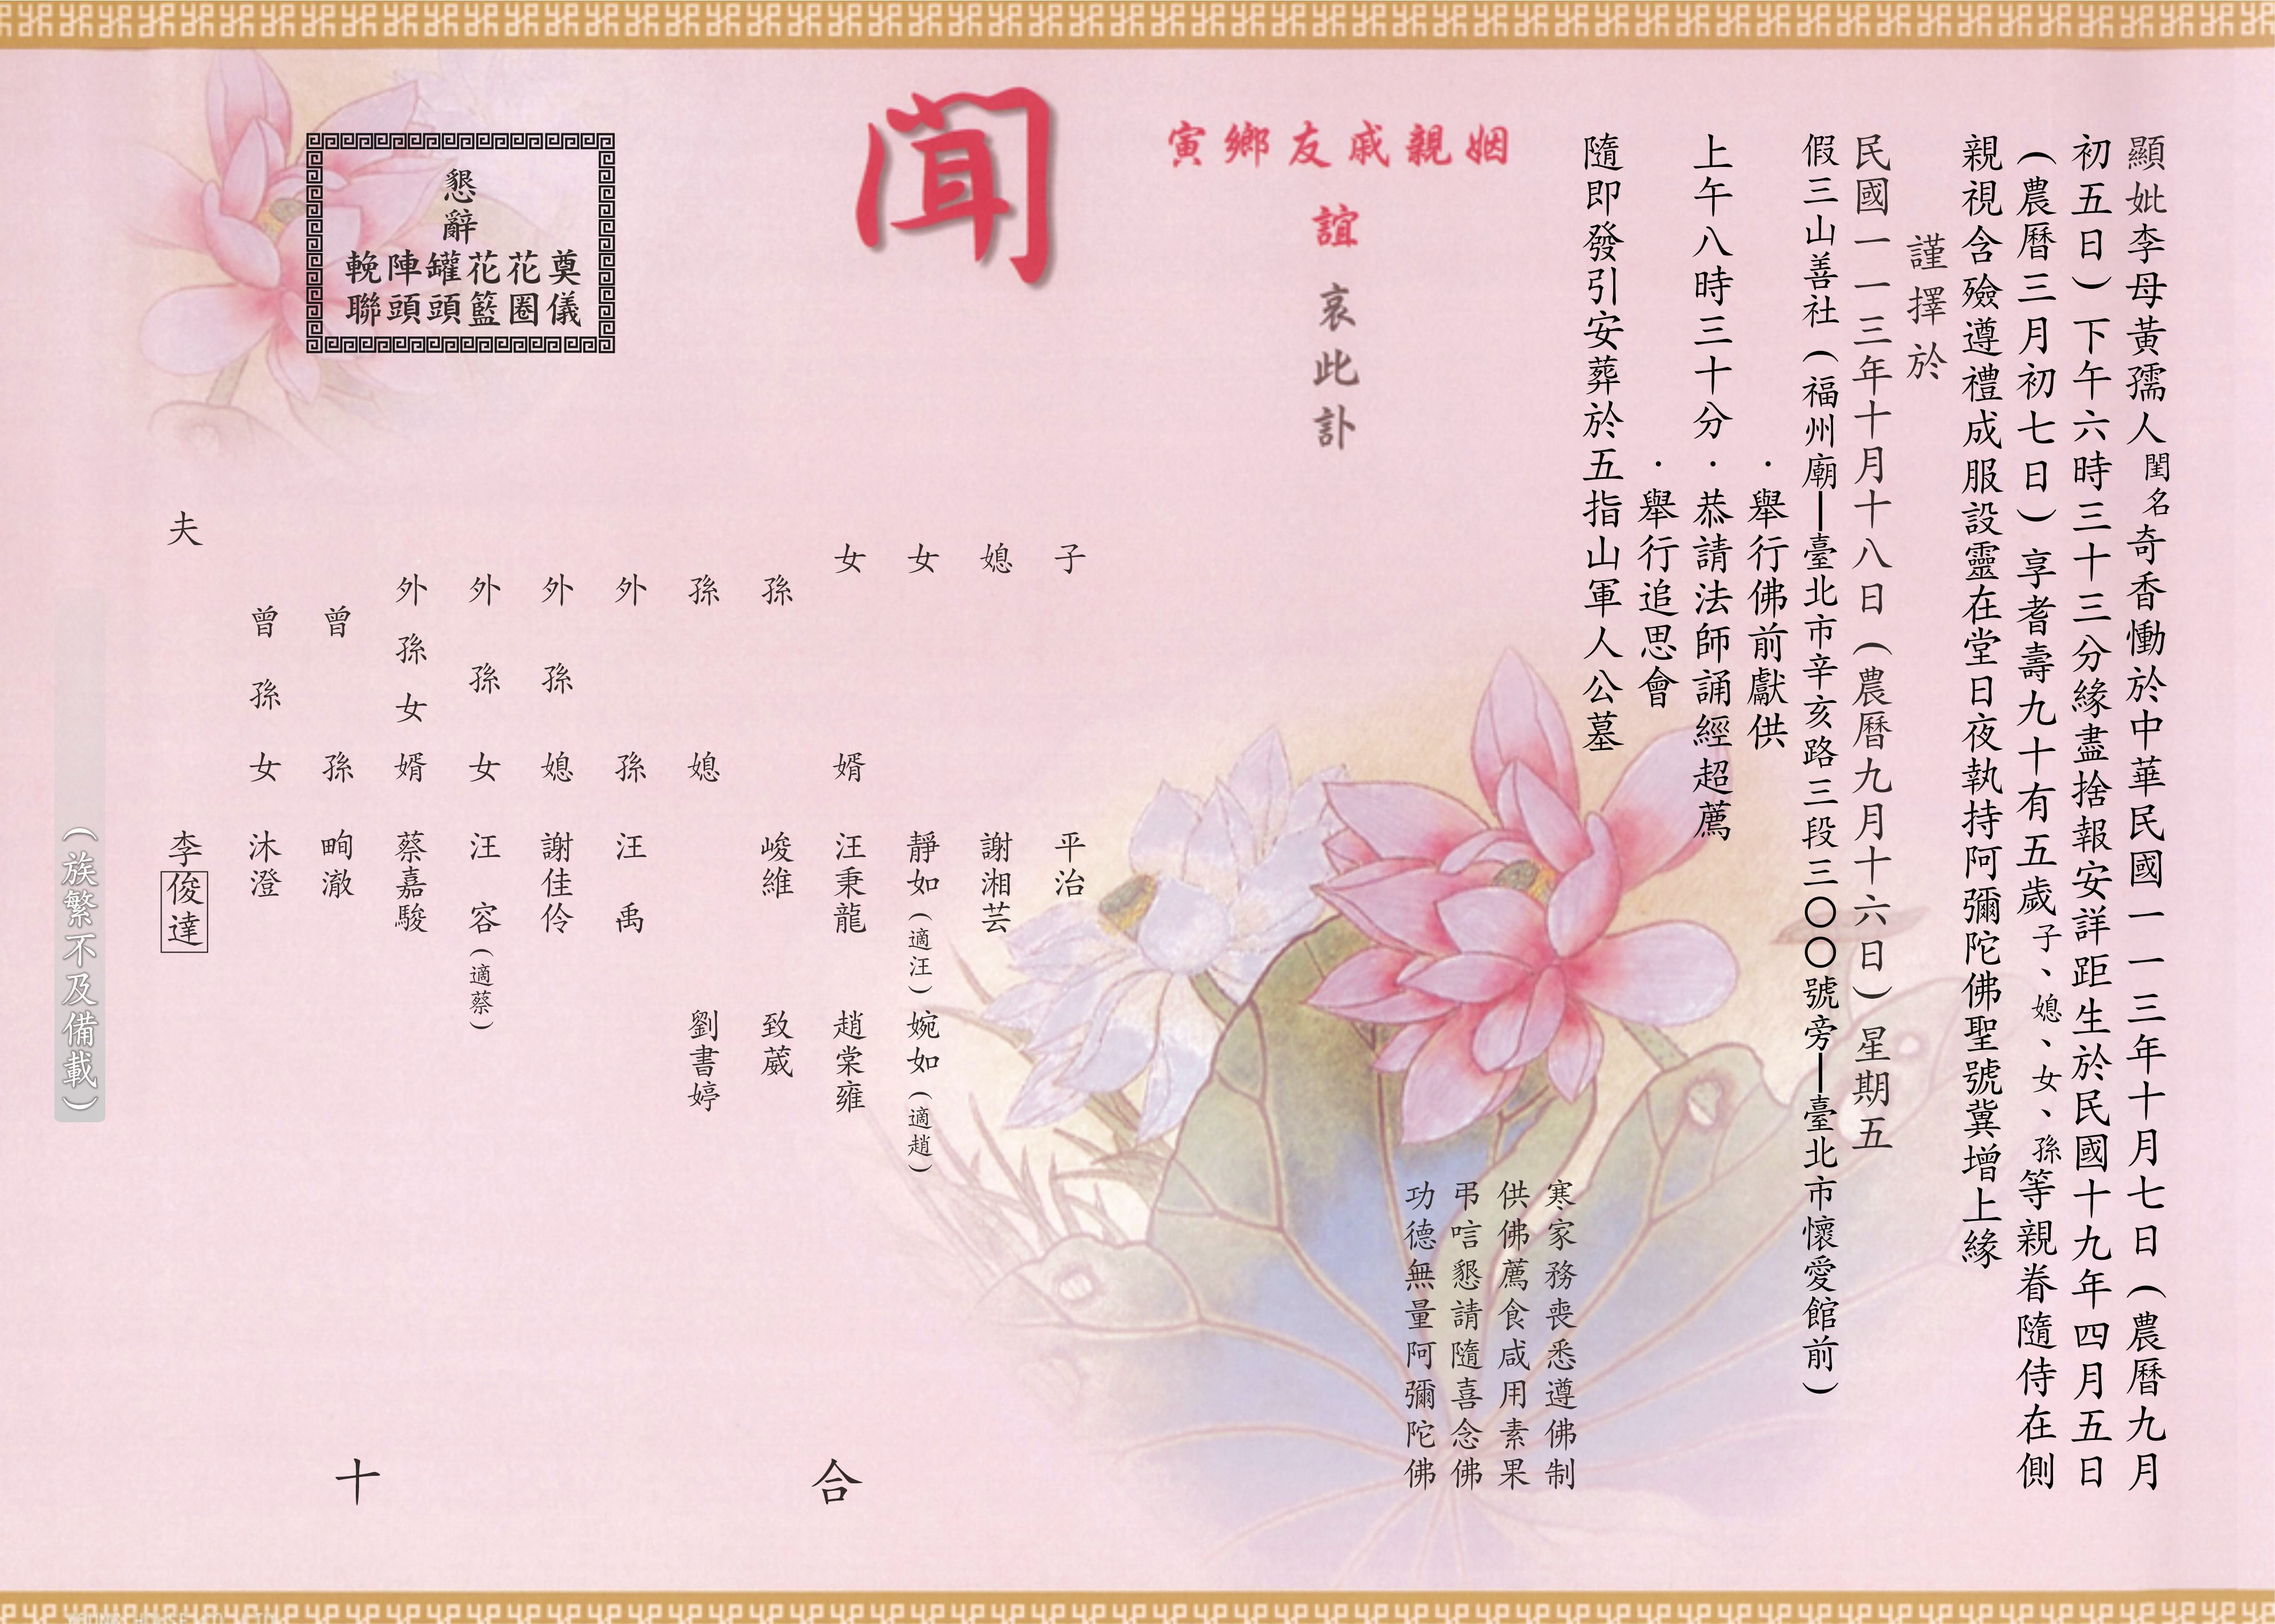 顯妣李母黃孺人閨名奇香慟於中華民國一一三年十月七日(農曆九月
初五日)下午六時三十三分緣盡捨報安詳距生於民國十九年四月五日
(農曆三月初七日)享耆壽九十有五歲子、媳、女、孫等親眷隨侍在側
親視含殮遵禮成服設靈在堂日夜執持阿彌陀佛聖號冀增上緣
謹擇於
民國一一三年十月十八日(農曆九月十六日)星期五
假三山善社(福州廟—臺北市辛亥路三段三〇〇號旁—臺北市懷愛館前)
·舉行佛前獻供
上午八時三十分·恭請法師誦經超薦
·舉行追思會
隨即發引安葬於五指山軍人公墓
寒家務喪悉遵佛制
供佛薦食咸用素果
弔唁懇請隨喜念佛
功德無量阿彌陀佛
姻親戚友鄉寅
誼
哀此訃
聞
子 平治
媳 謝湘芸
女 靜如(適汪) 婉如(適趙)
女婿 汪秉龍 趙棠雍
孫 峻維 致葳
孫媳 劉書婷
外孫 汪禹
外孫媳 謝佳伶
外孫女 汪容(適蔡)
外孫女婿 蔡嘉駿
曾孫 畇澈
曾孫女 沐澄
夫 李俊達
(族繁不及備載)
合十
懇辭
奠儀
花圈
花籃
罐頭
陣頭
輓聯